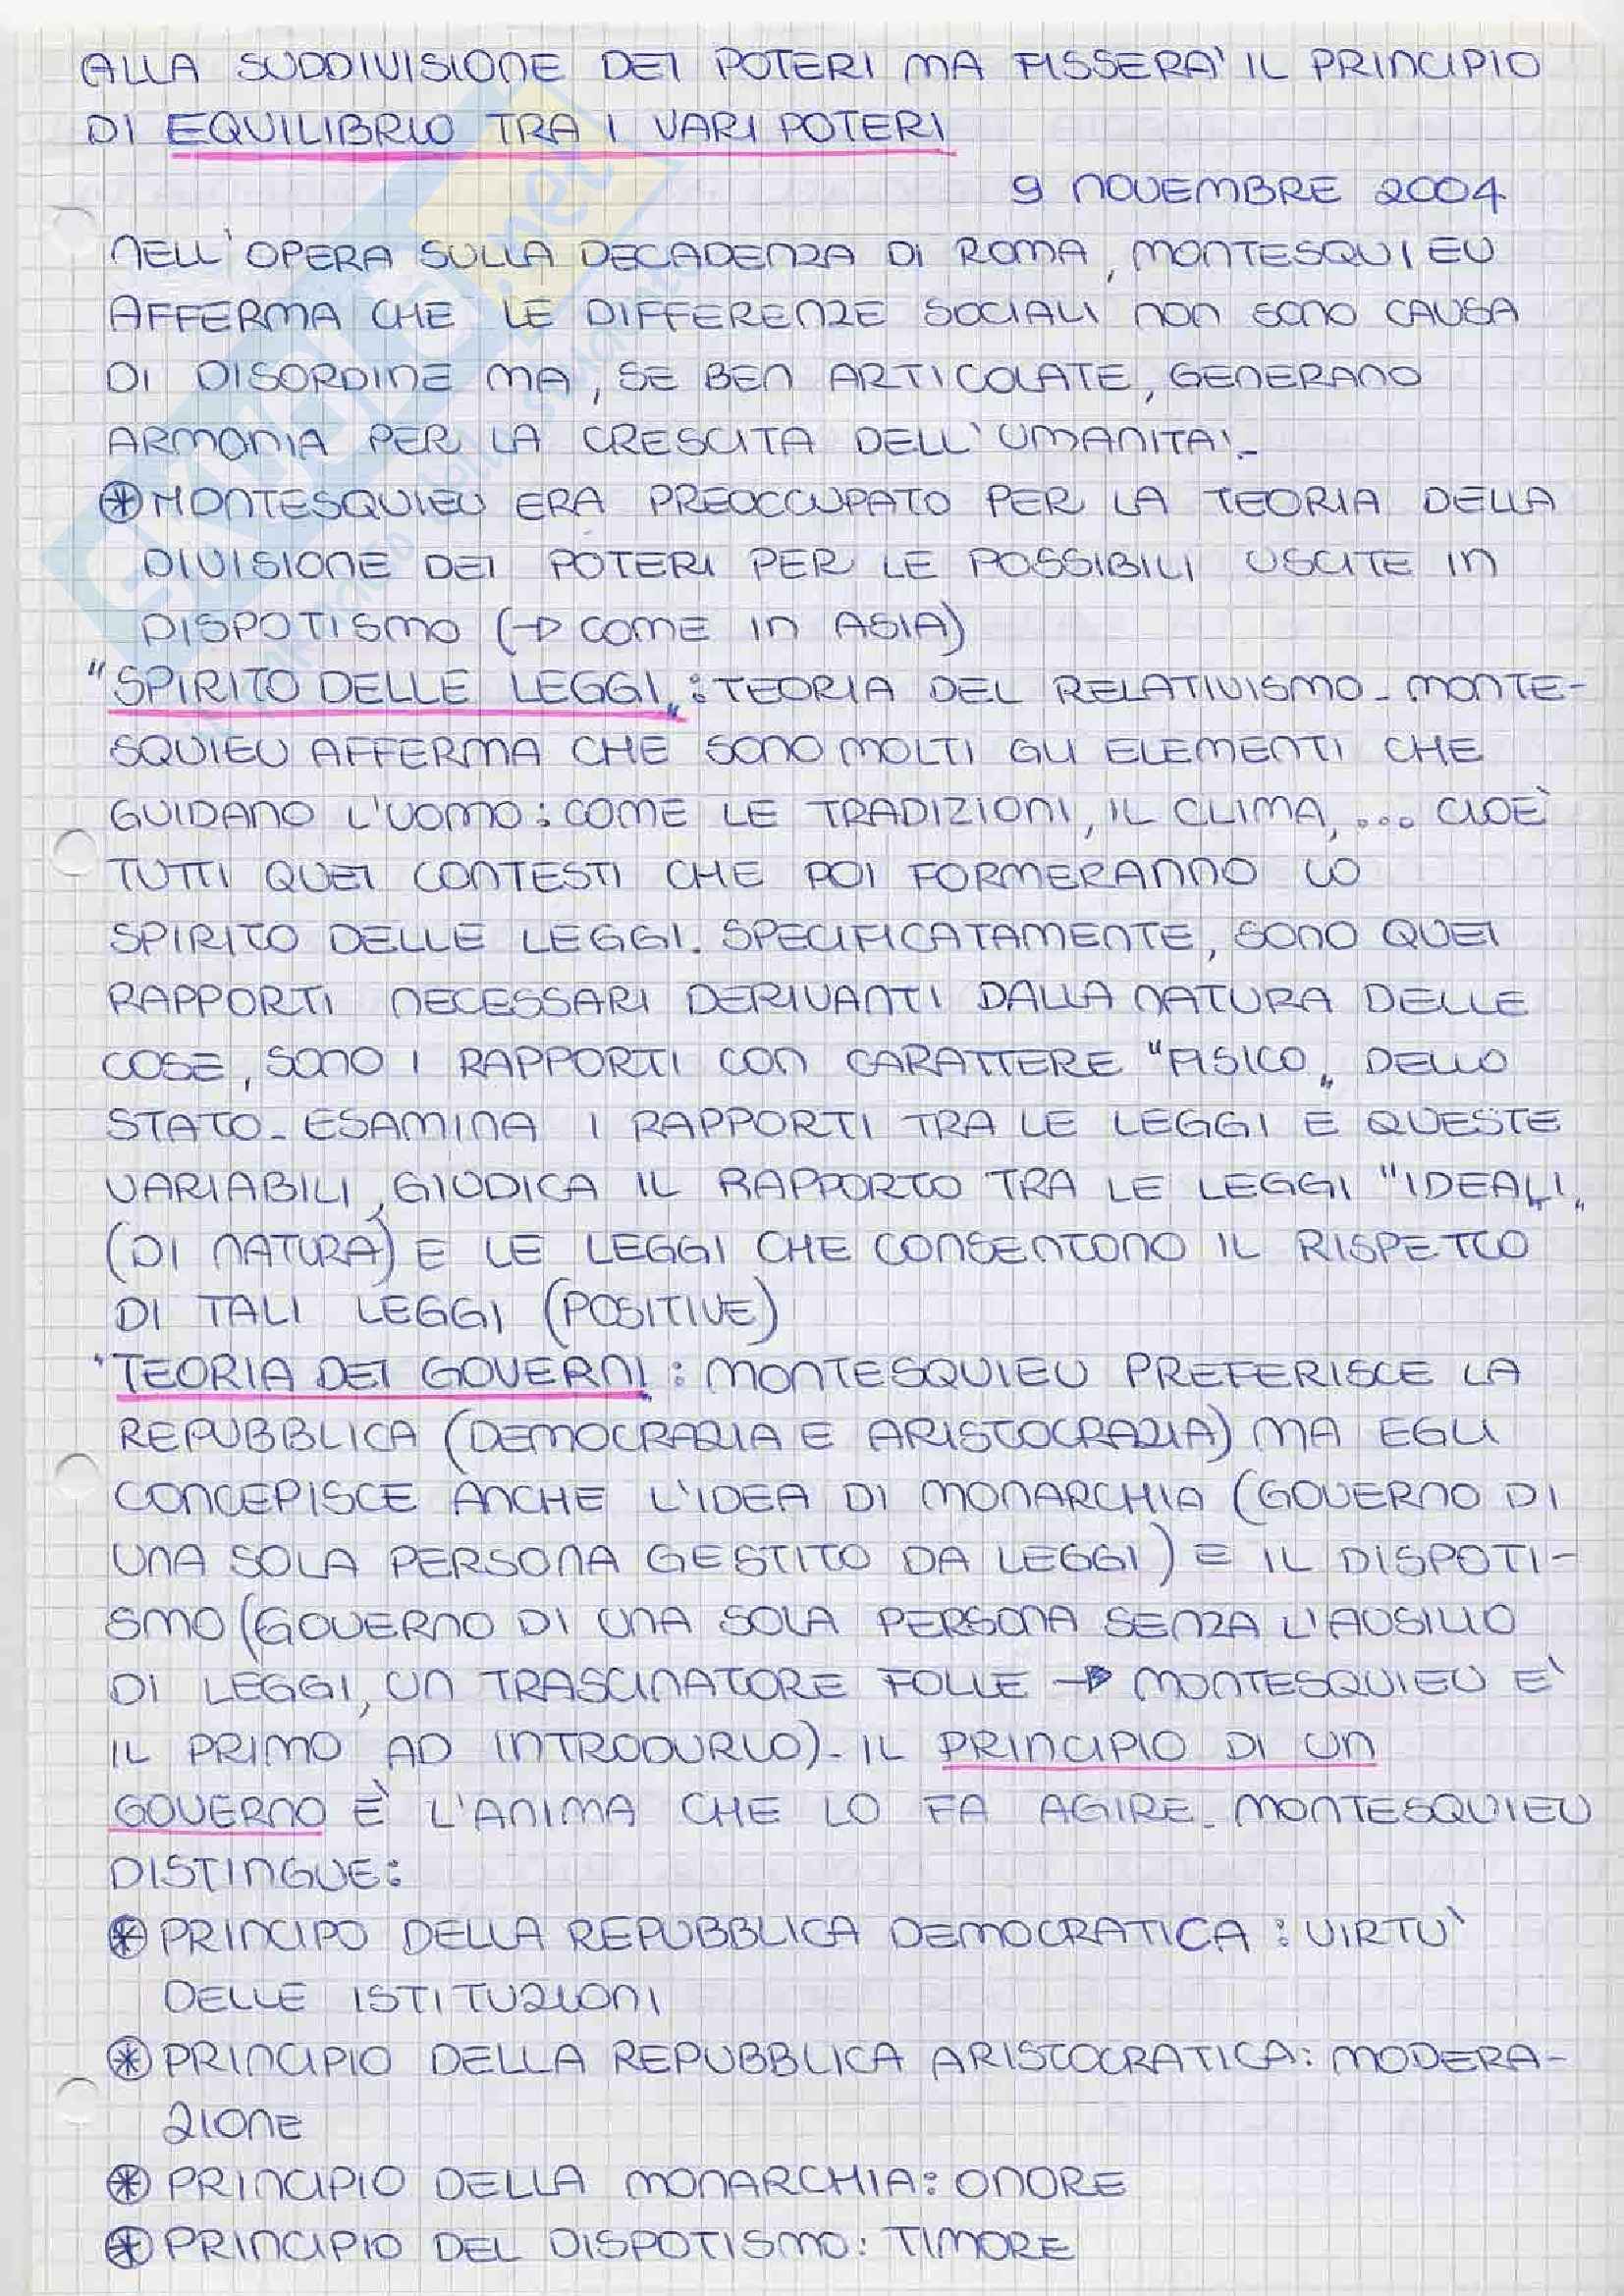 ALLA SUDDIVISIONE DEI POTERI MA FISSERA' IL PRINCIPIO
DI EQUILIBRIO TRA I VARI POTERI
9 NOVEMBRE 2004
NELL'OPERA SULLA DECADENZA DI ROMA, MONTESQUIEU
AFFERMA CHE LE DIFFERENZE SOCIALI NON SONO CAUSA
DI DISORDINE MA, SE BEN ARTICOLATE, GENERANO
ARMONIA PER LA CRESCITA DELL'UMANITA'.
⊛ MONTESQUIEU ERA PREOCCUPATO PER LA TEORIA DELLA
DIVISIONE DEI POTERI PER LE POSSIBILI USCITE IN
DISPOTISMO (→ COME IN ASIA)
"SPIRITO DELLE LEGGI„: TEORIA DEL RELATIVISMO - MONTE-
SQUIEU AFFERMA CHE SONO MOLTI GLI ELEMENTI CHE
GUIDANO L'UOMO: COME LE TRADIZIONI, IL CLIMA, ... CIOÈ
TUTTI QUEI CONTESTI CHE POI FORMERANNO LO
SPIRITO DELLE LEGGI. SPECIFICATAMENTE, SONO QUEI
RAPPORTI NECESSARI DERIVANTI DALLA NATURA DELLE
COSE, SONO I RAPPORTI CON CARATTERE "FISICO„ DELLO
STATO - ESAMINA I RAPPORTI TRA LE LEGGI E QUESTE
VARIABILI, GIUDICA IL RAPPORTO TRA LE LEGGI "IDEALI„
(DI NATURA) E LE LEGGI CHE CONSENTONO IL RISPETTO
DI TALI LEGGI (POSITIVE)
"TEORIA DEI GOVERNI„: MONTESQUIEU PREFERISCE LA
REPUBBLICA (DEMOCRAZIA E ARISTOCRAZIA) MA EGLI
CONCEPISCE ANCHE L'IDEA DI MONARCHIA (GOVERNO DI
UNA SOLA PERSONA GESTITO DA LEGGI) E IL DISPOTI-
SMO (GOVERNO DI UNA SOLA PERSONA SENZA L'AUSILIO
DI LEGGI, UN TRASCINATORE FOLLE → MONTESQUIEU E'
IL PRIMO AD INTRODURLO) - IL PRINCIPIO DI UN
GOVERNO È L'ANIMA CHE LO FA AGIRE - MONTESQUIEU
DISTINGUE:
⊛ PRINCIPO DELLA REPUBBLICA DEMOCRATICA: VIRTU'
DELLE ISTITUZIONI
⊛ PRINCIPIO DELLA REPUBBLICA ARISTOCRATICA: MODERA-
ZIONE
⊛ PRINCIPIO DELLA MONARCHIA: ONORE
⊛ PRINCIPIO DEL DISPOTISMO: TIMORE